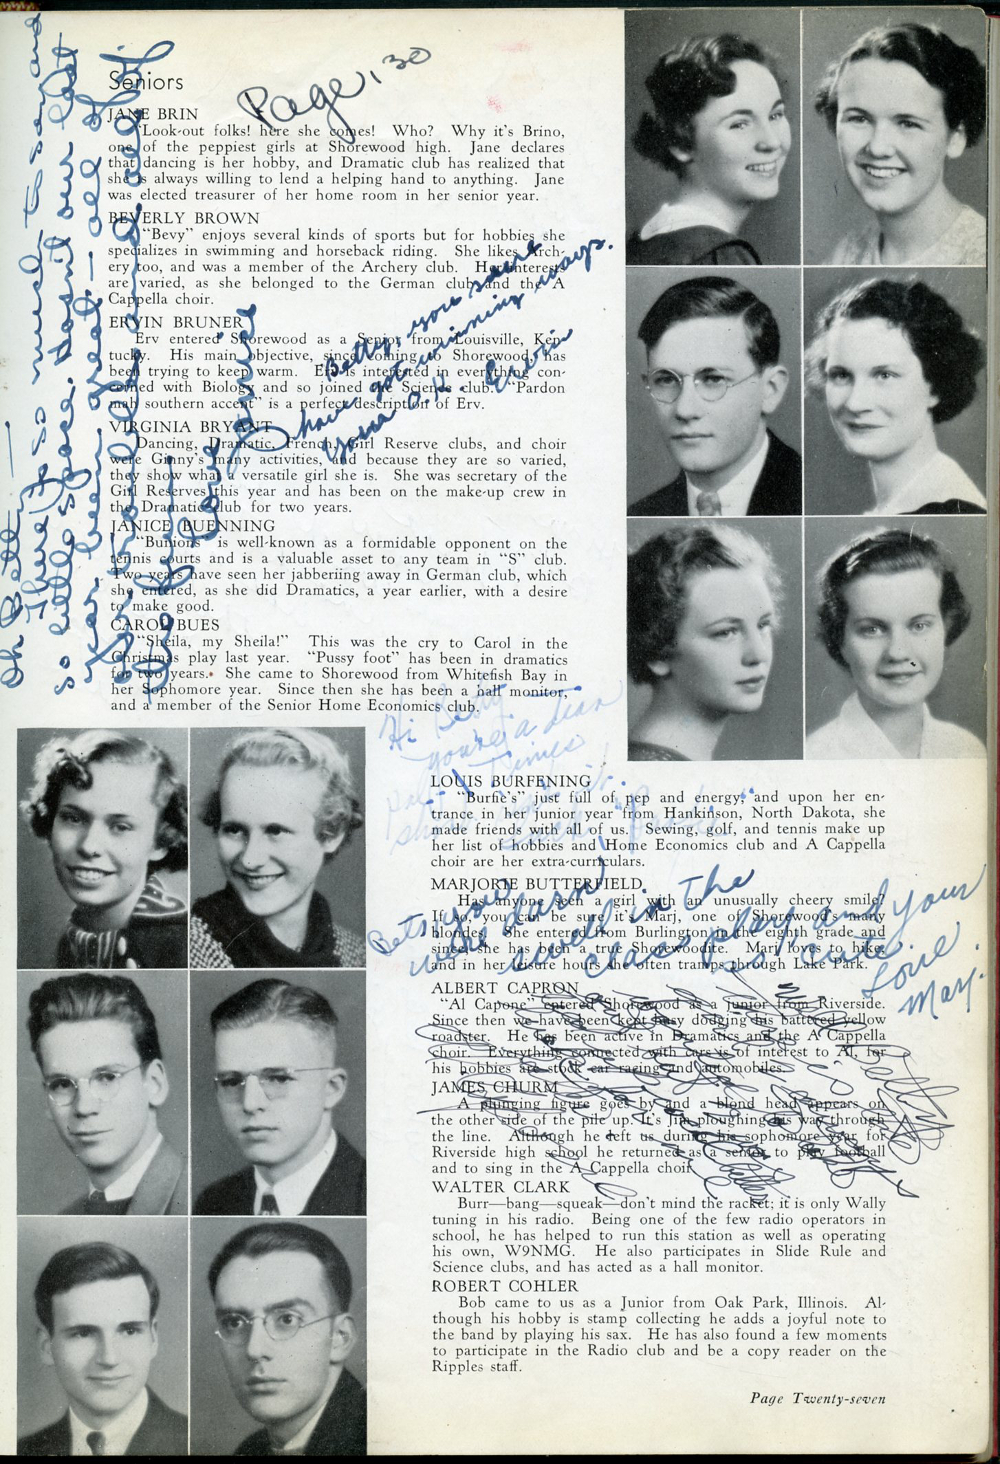 Seniors
Page 130
JANE BRIN
"Look-out folks! here she comes! Who? Why it's Brino,
one of the peppiest girls at Shorewood high. Jane declares
that dancing is her hobby, and Dramatic club has realized that
she is always willing to lend a helping hand to anything. Jane
was elected treasurer of her home room in her senior year.
BEVERLY BROWN
"Bevy" enjoys several kinds of sports but for hobbies she
specializes in swimming and horseback riding. She likes Arch-
ery too, and was a member of the Archery club. Her interests
are varied, as she belonged to the German club and the A
Cappella choir.
ERVIN BRUNER
Erv entered Shorewood as a Senior from Louisville, Ken-
tucky. His main objective, since coming to Shorewood, has
been trying to keep warm. Erv is interested in everything con-
cerned with Biology and so joined the Science club. "Pardon
mah southern accent" is a perfect description of Erv.
VIRGINIA BRYANT
Dancing, Dramatic, French, Girl Reserve clubs, and choir
were Ginny's many activities, and because they are so varied,
they show what a versatile girl she is. She was secretary of the
Girl Reserves this year and has been on the make-up crew in
the Dramatic club for two years.
JANICE BUENNING
"Bunions" is well-known as a formidable opponent on the
tennis courts and is a valuable asset to any team in "S" club.
Two years have seen her jabberiing away in German club, which
she entered, as she did Dramatics, a year earlier, with a desire
to make good.
CAROL BUES
"Sheila, my Sheila!" This was the cry to Carol in the
Christmas play last year. "Pussy foot" has been in dramatics
for two years. She came to Shorewood from Whitefish Bay in
her Sophomore year. Since then she has been a hall monitor,
and a member of the Senior Home Economics club.
Oh Betty —
There is so much to say and
so little space. Hasn't our last
year been great — all of
it
Betty, you sure
have got cunning ways.
Your O.K. Ervin
Hi Betty
you're a dear
times
LOUIS BURFENING
"Burfie's" just full of pep and energy, and upon her en-
trance in her junior year from Hankinson, North Dakota, she
made friends with all of us. Sewing, golf, and tennis make up
her list of hobbies and Home Economics club and A Cappella
choir are her extra-curriculars.
MARJORIE BUTTERFIELD
Has anyone seen a girl with an unusually cheery smile?
If so, you can be sure it's Marj, one of Shorewood's many
blondes. She entered from Burlington in the eighth grade and
since she has been a true Shorewoodite. Marj loves to hike,
and in her leisure hours she often tramps through Lake Park.
Bets, you
were darn
swell in the
class play and your
so cute.
Love
Marj.
ALBERT CAPRON
"Al Capone" entered Shorewood as a junior from Riverside.
Since then we have been kept busy dodging his battered yellow
roadster. He has been active in Dramatics and the A Cappella
choir. Everything connected with cars is of interest to Al, for
his hobbies are stock car racing and automobiles.
JAMES CHURM
A plunging figure goes by and a blond head appears on
the other side of the pile up. It's Jim ploughing his way through
the line. Although he left us during his sophomore year for
Riverside high school he returned as a senior to play football
and to sing in the A Cappella choir.
WALTER CLARK
Burr—bang—squeak—don't mind the racket; it is only Wally
tuning in his radio. Being one of the few radio operators in
school, he has helped to run this station as well as operating
his own, W9NMG. He also participates in Slide Rule and
Science clubs, and has acted as a hall monitor.
ROBERT COHLER
Bob came to us as a Junior from Oak Park, Illinois. Al-
though his hobby is stamp collecting he adds a joyful note to
the band by playing his sax. He has also found a few moments
to participate in the Radio club and be a copy reader on the
Ripples staff.
Page Twenty-seven